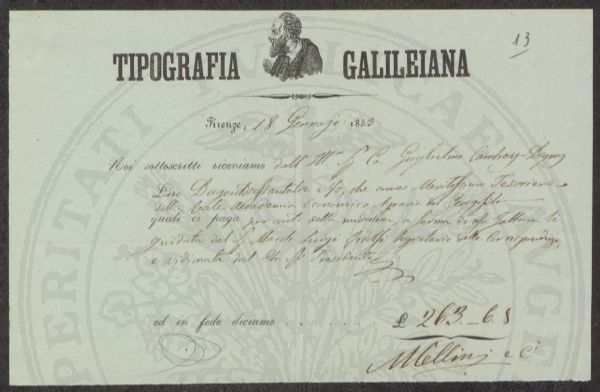 13
TIPOGRAFIA GALILEIANA
Firenze, 18 Gennajo 1853
Noi sottoscritti riceviamo dall' Ill. Sig. Co. Guglielmo Cambray-Digny
Lire Dugentosessantatre 6/8, che come Tesoriere
della Reale Accademia Economico Agraria dei Georgofili
quali ci paga per conto della medesima, a forma di
quidata dal Sig. March. Luigi Ridolfi Segretario delle Corrispondenze
e vidimata dal Sig. Presidente
ed in fede diciamo . . . . . . . . £ 263.-6.8
M Cellini e C.
PERITATI PUBLICAE AUGE